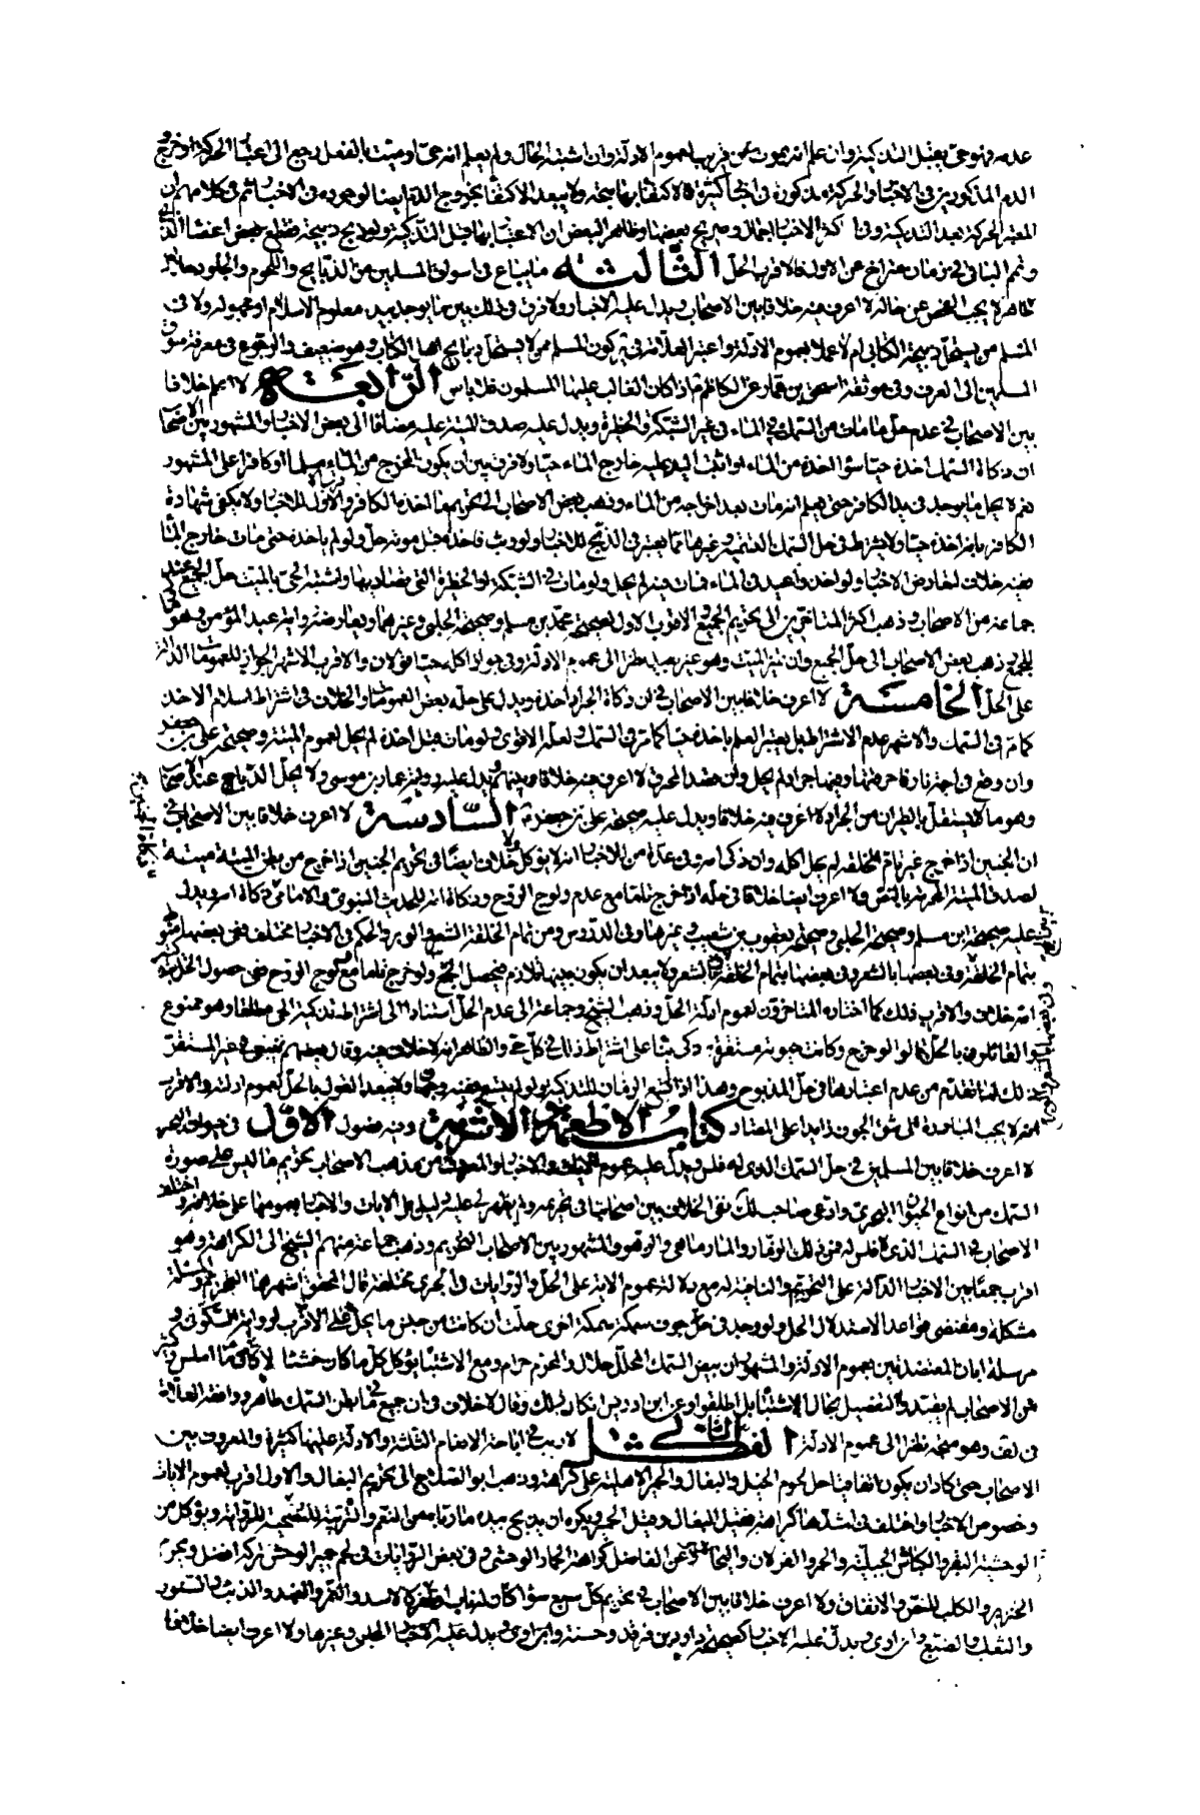 عدمه فهو حي يقبل التذكية وان علم انه يموت عن قريب لعموم الادلة وان اشتبه الحال ولم يعلم انه حي او ميت بالفعل رجع الى اعتبار الحركة او خروج
الدم المذكورين في الاخبار والحركة مذكورة في اخبار كثيرة فالاكتفاء بها متجه ولا يبعد الاكتفاء بخروج الدم ايضا لوجوده في الاخبار ثم في كلامهم ان
المعتبر الحركة بعد التذكية وفي اكثر الاخبار اجمال وصريح بعضها وظاهر البعض ان الاعتبار بما قبل التذكية ولو ذبح ذبيحة فقطع بعض اعضاء الذبح
وتمم الباقي في زمان متراخ عن الاول فالاقرب الحل الثالثة ما يباع في اسواق المسلمين من الذبايح واللحوم والجلود جايز
ظاهر لا يجب الفحص عن حاله لا اعرف فيه خلافا بين الاصحاب ويدل عليه الاخبار ولا فرق في ذلك بين ما يوجد بيد معلوم الاسلام او مجهوله ولا في
المسلم من يستحل ذبيحة الكتابي ام لا عملا بعموم الادلة واعتبر العلامة في التحرير كون المسلم ممن لا يستحل ذبايح اهل الكتاب وهو ضعيف والرجوع في معرفة سوق
المسلمين الى العرف وفي موثقة اسحق بن عمار عن الكاظم ع اذا كان الغالب عليها المسلمون فلا باس الرابعة لا اعلم خلافا
بين الاصحاب في عدم حل ما مات من السمك في الماء في غير الشبكة والحظيرة ويدل عليه صدق الميتة عليه مضافا الى بعض الاخبار والمشهور بين الاصحاب
ان ذكاة السمك اخذه حيا سواء اخذه من الماء او اثبت اليد عليه خارج الماء حيا ولا فرق بين ان يكون المخرج من الماء مسلما او كافرا على المشهور
نعم لا يحل ما يوجد في يد الكافر حتى يعلم انه مات بعد اخراجه من الماء وذهب بعض الاصحاب الى تحريم ما اخذه الكافر والاول للاخبار ولا يكفي شهادة
الكافر بانه اخذه حيا ولا يشترط في حل السمك التسمية وغيرها مما يعتبر في الذبح للاخبار ولو وثب فاخذه قبل موته حل ولو لم ياخذه حتى مات خارج الماء
ففيه خلاف لتعارض الاخبار ولو اخذ واعيد في الماء فمات فيه لم يحل ولو مات في الشبكة او الحظيرة التي يصاد بها واشتبه الحي بالميت حل الجميع عند
جماعة من الاصحاب وذهب اكثر المتاخرين الى تحريم الجميع والاقرب الاول لصحيحة محمد بن مسلم وصحيحة الحلبي وغيرهما ويعارضه رواية عبد المؤمن وهو
للجمع ذهب بعض الاصحاب الى حل الجميع وان تميز الميت وهو غير بعيد نظرا الى عموم الادلة وفي جواز اكله حيا قولان والاقرب الاشهر الجواز للعمومات الدالة
على الحل الخامسة لا اعرف خلافا بين الاصحاب في ان ذكاة الجراد اخذه ويدل على حله بعض العمومات والخلاف في اشتراط اسلام الاخذ
كما مر في السمك والاشهر عدم الاشتراط بل يعتبر العلم باخذه حيا كما مر في السمك ولعله الاقوى ولو مات قبل اخذه لم يحل لعموم الميتة وصحيحة علي بن جعفر
وان وقع في اجمة نار فاحرقتها وفيها جراد لم يحل وان قصد الحرق لا اعرف فيه خلافا بينهم ويدل عليه رواية عمار بن موسى ولا يحل الدبا عند الاصحاب
وهو ما لا يستقل بالطيران من الجراد لا اعرف فيه خلافا ويدل عليه صحيحة علي بن جعفر السادسة لا اعرف خلافا بين الاصحاب في
ان الجنين اذا خرج غير تام الخلقة لم يحل اكله وان ذكى امه وفي عدة من الاخبار انه لا يؤكل ولا خلاف ايضا في تحريم الجنين اذا خرج من بطن الميتة ميتة
لصدق الميتة المحرمة بالنص ولا اعرف ايضا خلافا في حله اذا خرج تاما مع عدم ولوج الروح وذكاة امه للحديث النبوي والامامي ذكاة امه ويدل
عليه صحيحة ابن مسلم وصحيحة الحلبي وصحيحة يعقوب بن شعيب وغيرها وفي الدروس ومن تمام الخلقة الشعر والوبر والحكم في الاخبار مختلف ففي بعضها منوط
بتمام الخلقة وفي بعضها بالشعر وفي بعضها بتمام الخلقة والشعر ولا يبعد ان يكون بينهما تلازم فيحصل الجمع ولو خرج تاما مع ولوج الروح ففي حصول الحل بتذكية
امه خلاف والاقرب ذلك كما اختاره المتاخرون لعموم ادلة الحل وذهب الشيخ وجماعة الى عدم الحل استنادا الى اشتراط تذكية الحي مطلقا وهو ممنوع
والقائلون بالحل قالوا لو خرج وكانت حيوته مستقرة ذكى بناء على اشتراط ذلك في كل حي والظاهر انه لا خلاف فيه وقال بعضهم في غير المستقر
ذلك لما تقدم من عدم اعتبارها في حل المذبوح وهذا اذا اتسع الزمان للتذكية ولو لم يتسع ففيه وجهان ولا يبعد القول بالحل لعموم ادلته والاقرب
انه لا يجب المبادرة الى شق الجوف زايدا على المعتاد كتاب الاطعمة والاشربة وفيه فصول الاول في حيوان البحر
لا اعرف خلافا بين المسلمين في حل السمك الذي له فلس ويدل عليه عموم الايات والاخبار والمعروف من مذهب الاصحاب تحريم ما ليس على صورة
السمك من انواع الحيوان البحري وادعى صاحب لك نفي الخلاف بين اصحابنا في تحريمه ولم يظهر لي عليه دليل بل الايات والاخبار بعمومها على خلافه واختلف
الاصحاب في السمك الذي لا فلس له فمن ذلك الزمار والمارماهي والزهو والمشهور بين الاصحاب التحريم وذهب جماعة منهم الشيخ الى الكراهة وهو
اقرب جمعا بين الاخبار الدالة على التحريم والنافية له مع دلالة عموم الاية على الحل والروايات في الجري مختلفة قال المحقق اشهرها التحريم والمسئلة
مشكلة ومقتضى قواعد الاستدلال الحل ولو وجد في جوف سمكة سمكة اخرى حلت ان كانت من جنس ما يحل على الاقرب لرواية السكوني و
مرسلة ابان المعتضدتين بعموم الادلة والمشهور ان بيض السمك المحلل حلال والمحرم حرام ومع الاشتباه يؤكل كل ما كان خشنا لا ما كان املس وكثير
من الاصحاب لم يقيدوا التفصيل بحال الاشتباه بل اطلقوا وعن ابن ادريس انكار ذلك وقال لا خلاف في ان جميع ما في بطن السمك طاهر ووافقه العلامة
في لف وهو متجه نظرا الى عموم الادلة الفصل الثاني لا ريب في اباحة الانعام الثلثة والادلة عليها كثيرة والمعروف بين
الاصحاب حتى كاد ان يكون اتفاقيا حل لحوم الخيل والبغال والحمير الاهلية على كراهة وذهب ابو الصلاح الى تحريم البغال والاول اقرب لعموم الايات
وخصوص الاخبار واختلف في اشدها كراهة فقيل البغال وقيل الحمير ويكره ان يذبح بيده ما رباه من النعم والتربية للتضحية للرواية ويؤكل من
الوحشية البقر والكباش الجبلية والحمر والغزلان واليحامير وعن الفاضل كراهة الحمار الوحشي وفي بعض الروايات في لحم حمير الوحش تركه افضل ويحرم
الخنزير والكلب للنص والاتفاق ولا اعرف خلافا بين الاصحاب في تحريم كل سبع سواء كان له ناب او ظفر كالاسد والنمر والفهد والذئب والسنور
والثعلب والضبع وابن اوى ويدل عليه الاخبار كصحيحة داود بن فرقد وحسنة وابن اوى ويدل عليه الاخبار الحلبي وغيرها ولا اعرف ايضا خلافا
ذكاة الجنين
وفي بعضها بالشعر والوبر